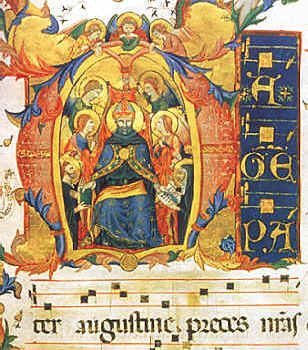 MA
GNE
P.A
ter augustine. preces nr̃as